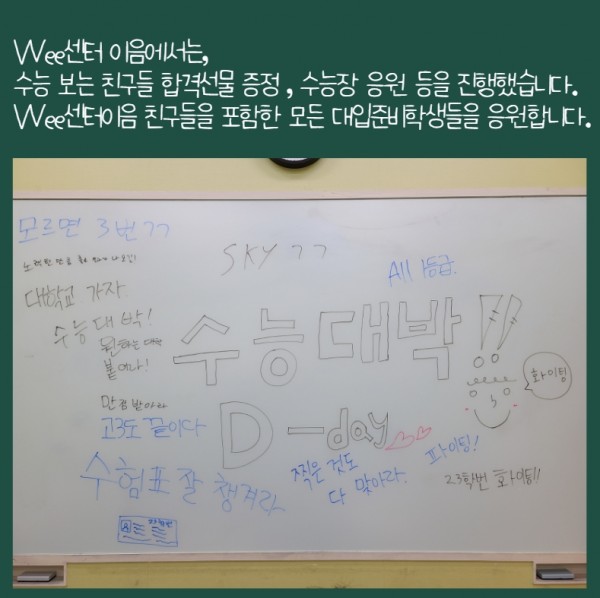 Wee센터 이음에서는,
수능 보는 친구들 합격선물 증정 , 수능장 응원 등을 진행했습니다.
Wee센터이음 친구들을 포함한 모든 대입준비학생들을 응원합니다.
모르면 3번ㄱㄱ
SKY ㄱㄱ
All 1등급
대학교 가자
수능대박!
원하는 대학
붙어라!
수능대박!!
화이팅
만점 받아라
고3도 끝이다
D-day
찍은 것도
다 맞아라.
파이팅!
23학번 화이팅!!
수험표 잘 챙겨라
수험표